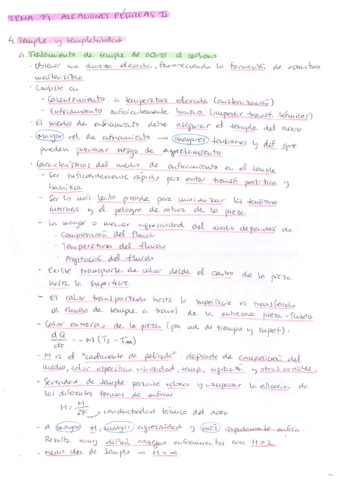 TEMA 15 ALEACIONES FÉRREAS II
4. Temple y templabilidad
a. Tratamiento de temple de aceros al carbono
- Obtener una dureza elevada, favoreciendo la formación de estructura
martensítica
- Consiste en
- Calentamiento a temperatura elevada (austenización)
- Enfriamiento suficientemente brusco (impedir transf. térmicas)
- El medio de enfriamiento debe asegurar el temple del acero
mayor vel de enfriamiento → mayores tensiones y def que
pueden provocar riesgo de agrietamiento
- Características del medio de enfriamiento en el temple
- Ser suficientemente rápido para evitar transf perlítica y
bainítica
- Ser lo más lento posible para minimizar las tensiones
internas y el peligro de rotura de la pieza
- La mayor o menor agresividad del medio depende de
- Composición del fluido
- Temperatura del fluido
- Agitación del fluido
- Existe transporte de calor desde el centro de la pieza
hasta la superficie
- El calor transportado hasta la superficie es transferido
al fluido de temple a través de la entrecara pieza-fluido
- Calor extraído de la pieza (por ud de tiempo y superf).
dQ/dt = - M (Ts - Tm)
- M es el "coeficiente de película" depende de composición del
medio, calor específico, viscosidad, temp, agitación y
- Severidad de temple permite valorar y comparar la eficacia de
las diferentes formas de enfriar
H = M/2K → conductividad térmica del acero
- A mayor H, mayor agresividad y más rápidamente enfría.
Resulta muy difícil conseguir enfriamientos con H > 2
- medio ideal de temple → H = ∞.